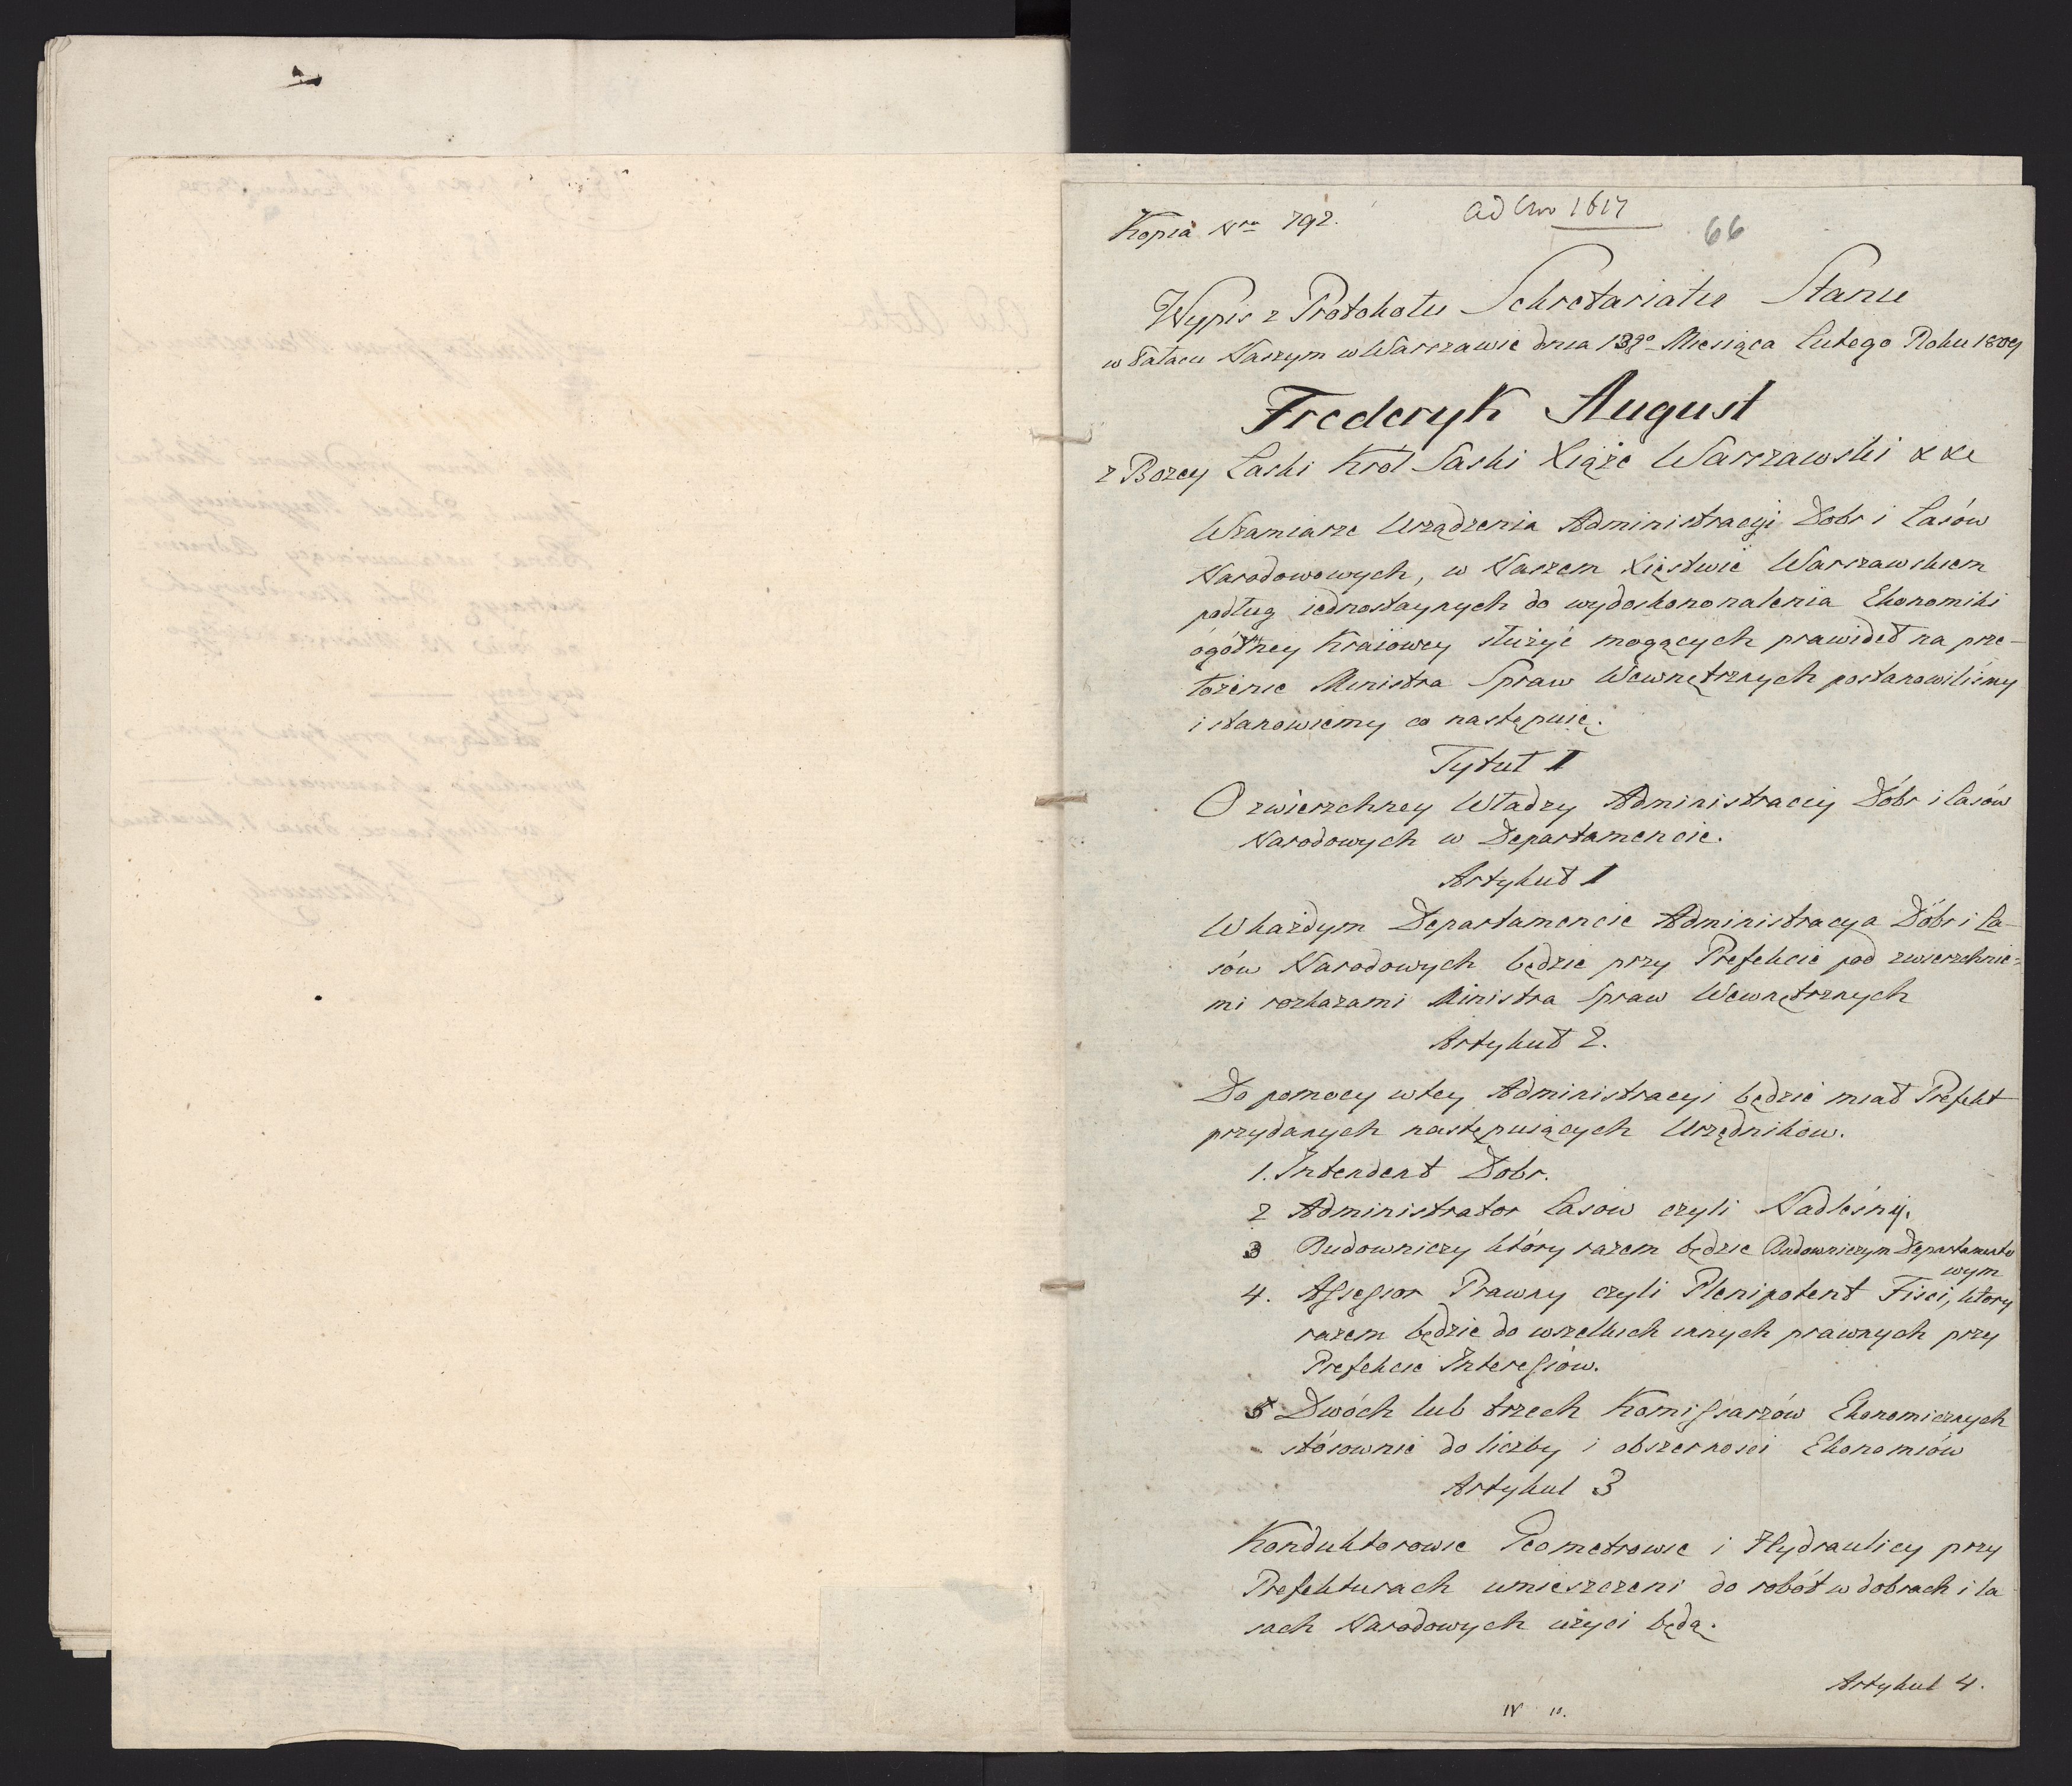 Kopia Nro 792.
ad Nro 1617
66
Wypis z Protokołu Sekretariatu Stanu
w Pałacu Naszym w Warszawie dnia 13go Miesiąca Lutego Roku 1809
Frederyk August
z Bozey Łaski Król Saski Xiąże Warszawski &&c
W zamiarze Urządzenia Administracyi Dobr i Lasów
Narodowowych, w Naszem Xięstwie Warszawskiem
podług iednostaynych do wydoskononalenia Ekonomiki
ogólney Kraiowey służyć mogących prawideł na prze-
łożenie Ministra Spraw Wewnętrznych postanowiliśmy
i stanowiemy co następuie:
Tytuł I
O zwierzchney Władzy Administracyi Dóbr i Lasów
Narodowych w Departamencie.
Artykuł 1
W każdym Departamencie Administracya Dóbr i La-
sów Narodowych będzie przy Prefekcie pod zwierzchnie=
mi rozkazami Ministra Spraw Wewnętrznych
Artykuł 2.
Do pomocy w tey Administracyi będzie miał Prefekt
przydanych następuiących Urzędników.
1. Intendent Dobr.
2 Administrator Lasow czyli Nadleśny.
3 Budowniczy który razem będzie Budowniczym Departamento
wym
4. Assessor Prawny czyli Plenipotent Fisci, ktory
razem będzie do wszelkich innych prawnych przy
Prefekcie Interessów.
5 Dwóch lub trzech Komissarzów Ekonomicznych
stósownie do liczby i obszernosci Ekonomiów
Artykul 3
Konduktorowie Geometrowie i Hydraulicy przy
Prefekturach umieszczeni do robót w dobrach i la
sach Narodowych użyci będą.
Artykul 4.